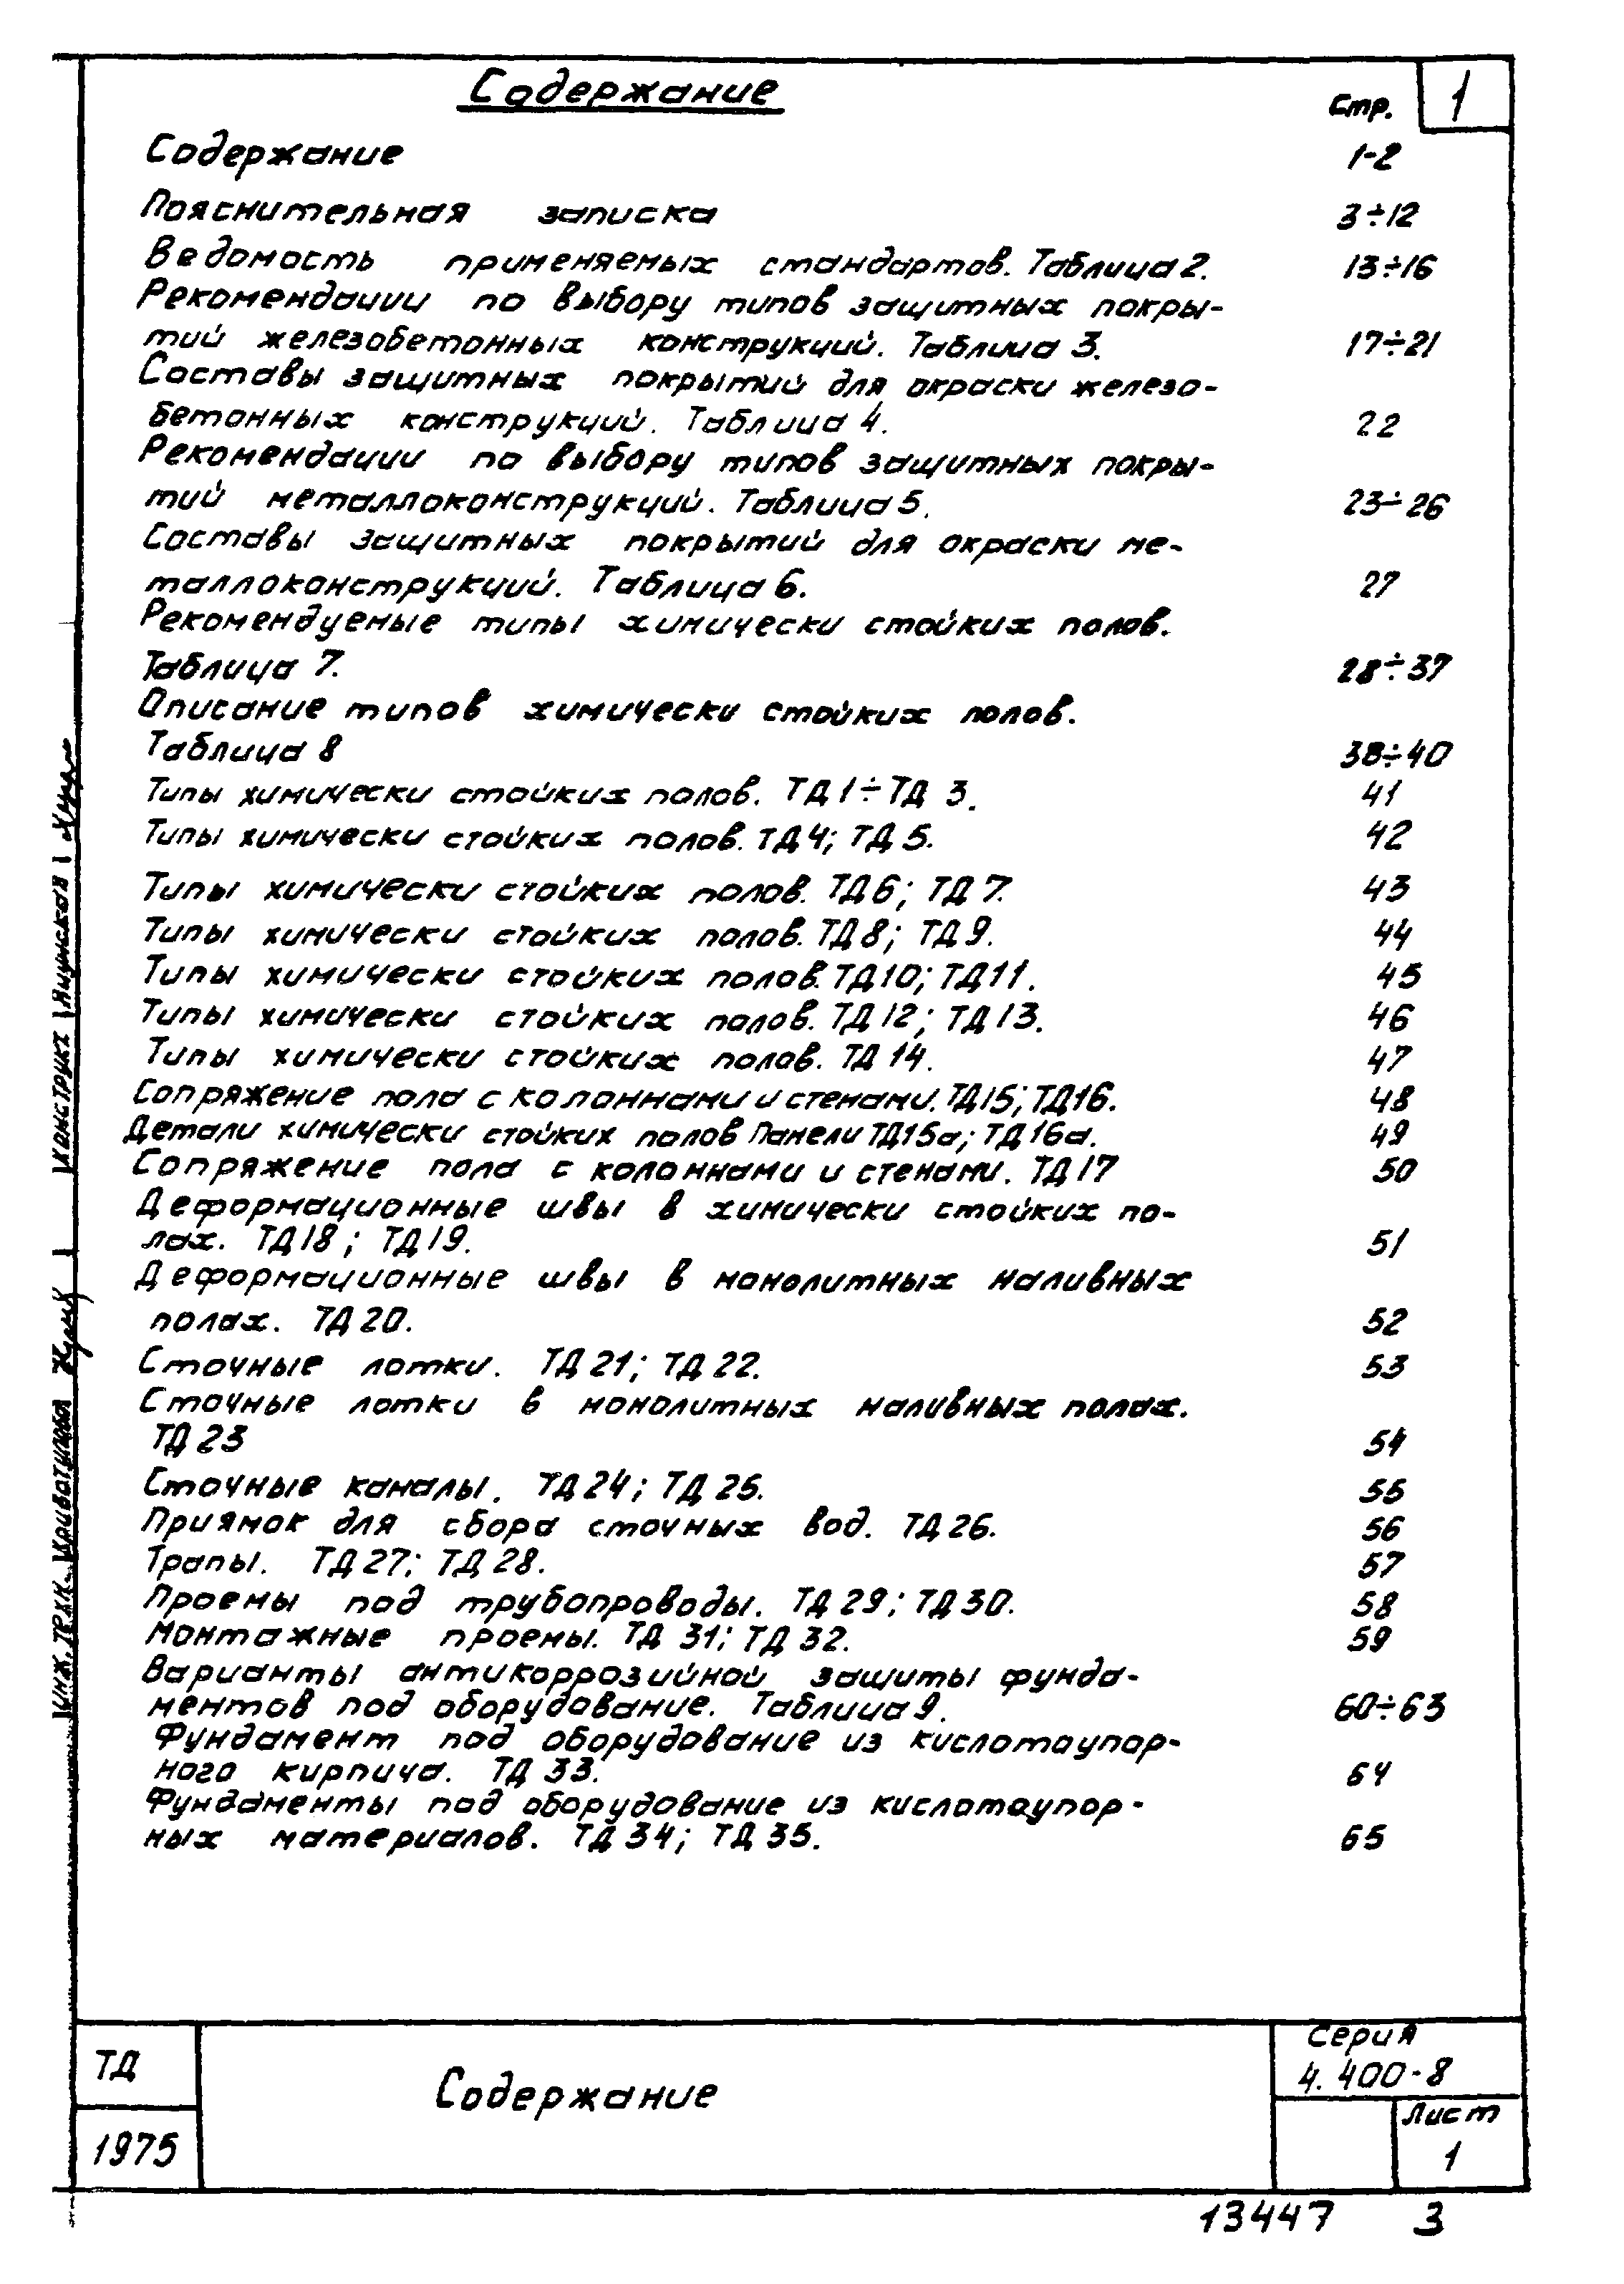 Содержание
Стр. 1
Содержание 1-2
Пояснительная записка 3÷12
Ведомость применяемых стандартов. Таблица 2. 13÷16
Рекомендации по выбору типов защитных покры-
тий железобетонных конструкций. Таблица 3. 17÷21
Составы защитных покрытий для окраски железо-
бетонных конструкций. Таблица 4. 22
Рекомендации по выбору типов защитных покры-
тий металлоконструкций. Таблица 5. 23÷26
Составы защитных покрытий для окраски ме-
таллоконструкций. Таблица 6. 27
Рекомендуемые типы химически стойких полов.
Таблица 7. 28÷37
Описание типов химически стойких полов.
Таблица 8 38÷40
Типы химически стойких полов. ТД 1÷ТД 3. 41
Типы химически стойких полов. ТД 4; ТД 5. 42
Типы химически стойких полов. ТД 6; ТД 7. 43
Типы химически стойких полов. ТД 8; ТД 9. 44
Типы химически стойких полов. ТД 10; ТД 11. 45
Типы химически стойких полов. ТД 12; ТД 13. 46
Типы химически стойких полов. ТД 14. 47
Сопряжение пола с колоннами и стенами. ТД15; ТД16. 48
Детали химически стойких полов Панели ТД15а; ТД16а. 49
Сопряжение пола с колоннами и стенами. ТД 17 50
Деформационные швы в химически стойких по-
лах. ТД 18; ТД 19. 51
Деформационные швы в монолитных наливных
полах. ТД 20. 52
Сточные лотки. ТД 21; ТД 22. 53
Сточные лотки в монолитных наливных полах.
ТД 23 54
Сточные каналы. ТД 24; ТД 25. 55
Приямок для сбора сточных вод. ТД 26. 56
Трапы. ТД 27; ТД 28. 57
Проемы под трубопроводы. ТД 29; ТД 30. 58
Монтажные проемы. ТД 31; ТД 32. 59
Варианты антикоррозийной защиты фунда-
ментов под оборудование. Таблица 9. 60÷63
Фундамент под оборудование из кислотоупор-
ного кирпича. ТД 33. 64
Фундаменты под оборудование из кислотоупор-
ных материалов. ТД 34; ТД 35. 65
конструкт Яцунская
инж. техн.
ТД
1975
Содержание
Серия
4.400-8
Лист
1
13447 3